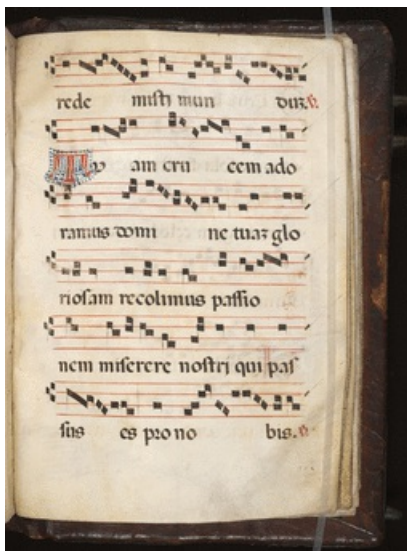 rede misti mun duz. ℟
Tu am cru cem ado
ramus domi ne tuaꝫ glo
riosam recolimus passio
nem miserere nostri qui pas
sus es pro no bis. ℟